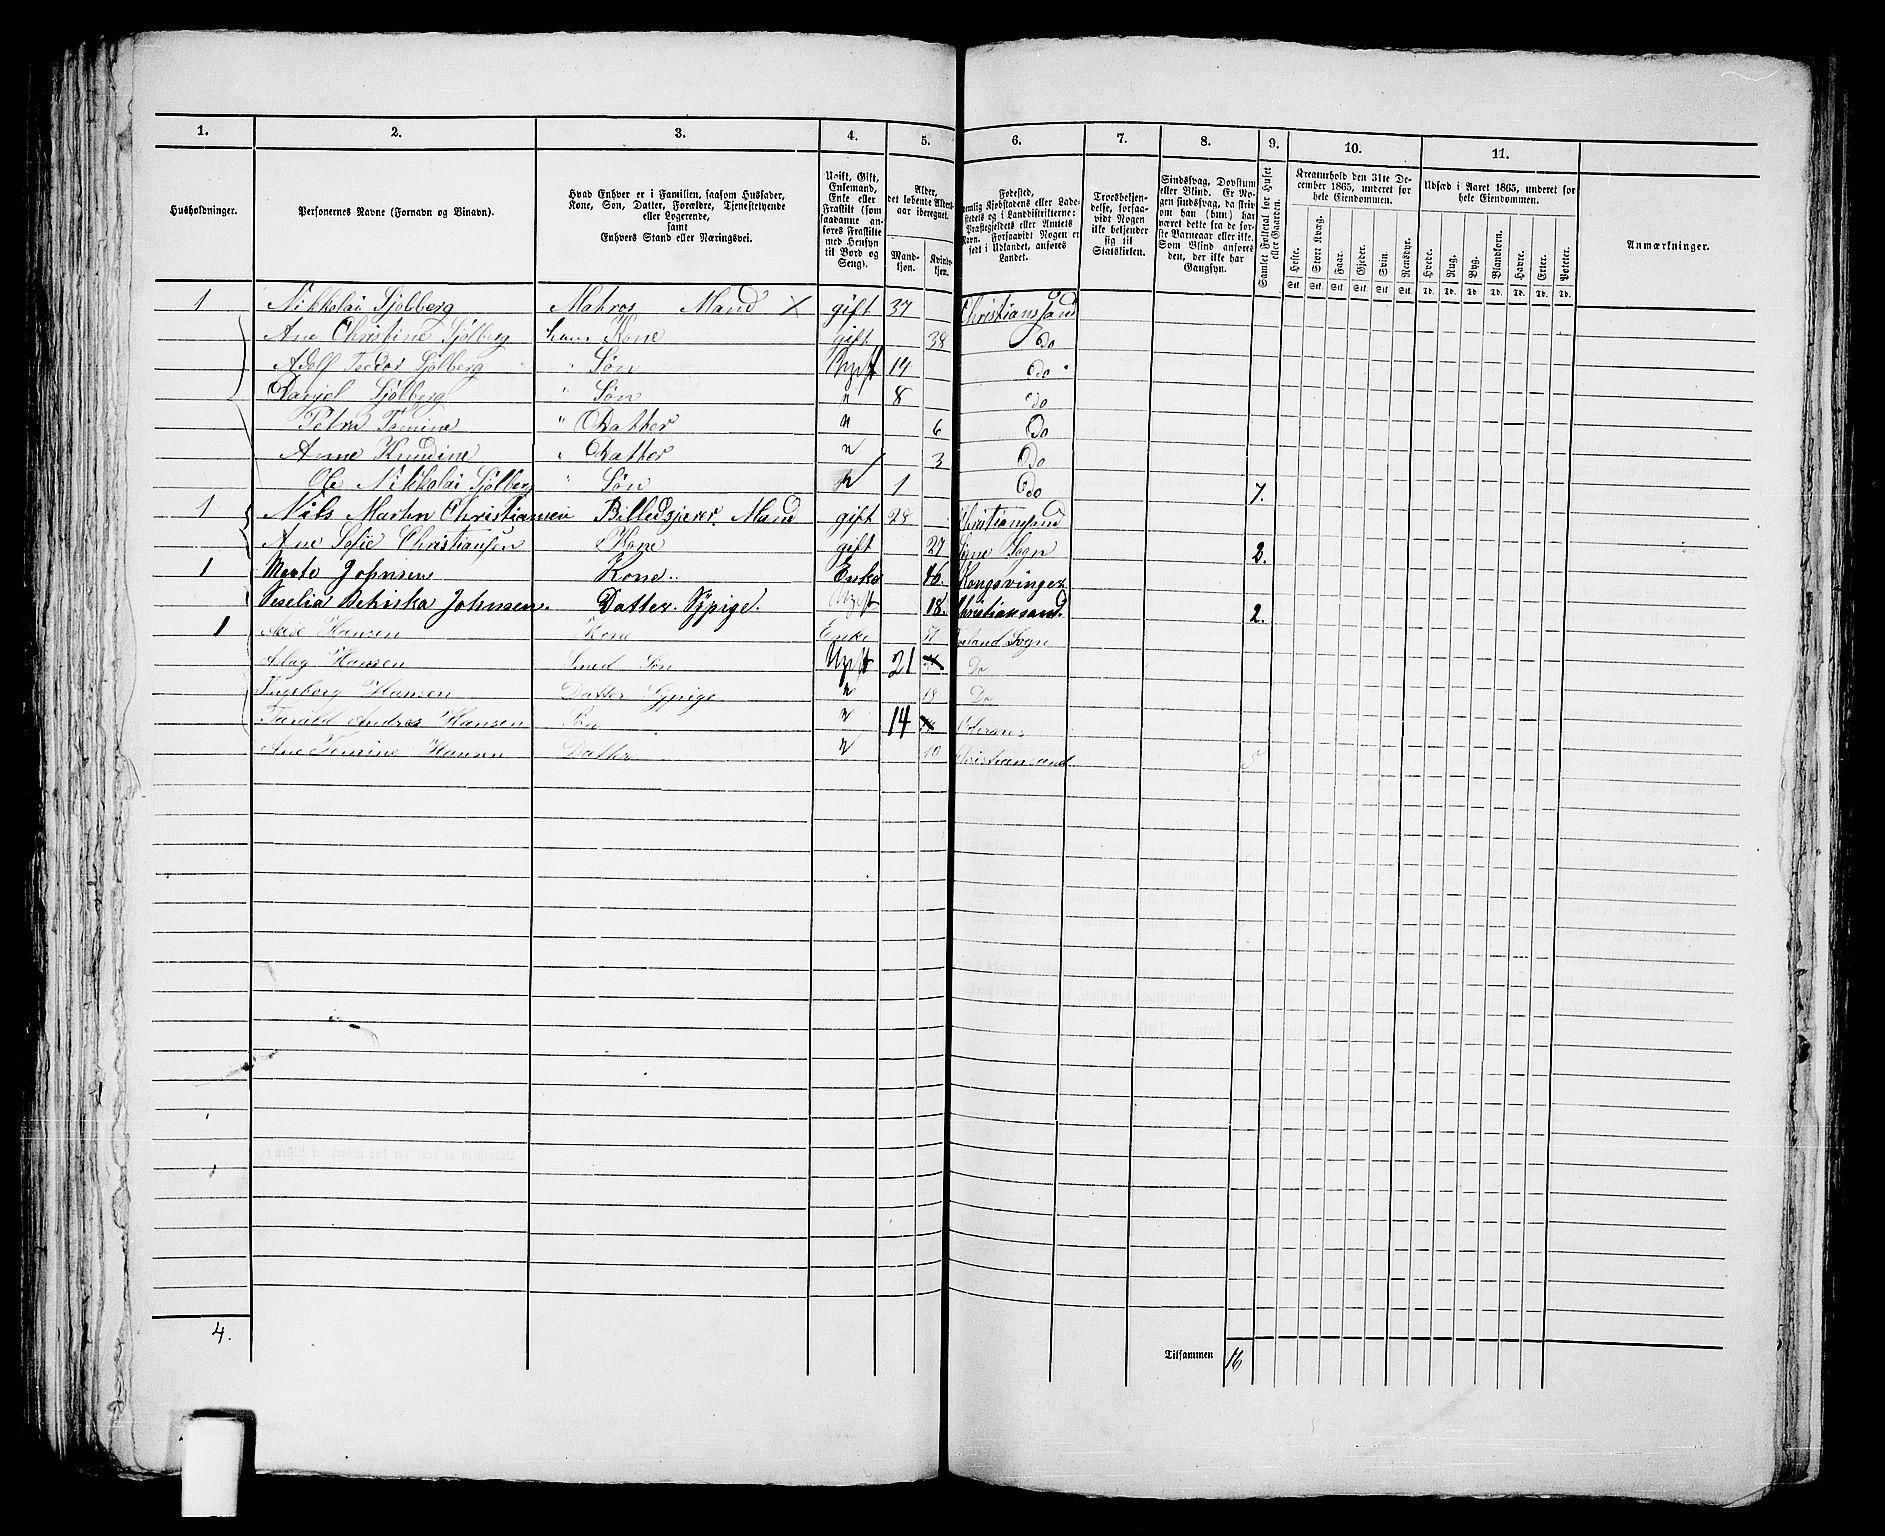 1. 2. 3. 4. 5. 6. 7. 8. 9. 10. 11.
Husholdninger.
Personernes Navne (Fornavn og Binavn).
Hvad Enhver er i Familien, saasom Husfader,
Kone, Søn, Datter, Forældre, Tjenestetyende
eller Logerende,
samt
Enhvers Stand eller Næringsvei.
Ugift, Gift,
Enkemand,
Enke eller
Fraskilt (som
saadanne an-
føres Fraskilte
med Hensyn
til Bord og
Seng).
Alder,
det løbende Alders-
aar iberegnet.
Mand-
kjøn.
Kvinde-
kjøn.
Fødested,
nemlig Kjøbstadens eller Lade-
stedets og i Landdistrikterne:
Præstegjeldets eller Annexets
Navn. Forsaavidt Nogen er
født i Udlandet, anføres
Landet.
Troesbekjen-
delse, forsaa-
vidt Nogen
ikke bekjender
sig til
Statskirken.
Sindssvag, Døvstum
eller Blind. Er No-
gen sindssvag, da skriv
om han (hun) har
været dette fra de før-
ste Barneaar eller ikke.
Som Blind anføres
den, der ikke har
Gangsyn.
Samlet Folketal for Huset
eller Gaarden.
Kreaturhold den 31te De-
cember 1865, underet for
hele Eiendommen.
Heste. Stort Kvæg. Faar. Gjeder. Svin. Rensdyr.
Stk. Stk. Stk. Stk. Stk. Stk.
Udsæd i Aaret 1865, underet for
hele Eiendommen.
Hvede. Rug. Byg. Blandkorn. Havre. Erter. Poteter.
Td. Td. Td. Td. Td. Td. Td.
Anmærkninger.
1 Nikkolai Sjølberg Matros Mand X gift 37 Christianssand
Ane Christine Sjølberg hans Kone gift 38 Do
Adolf Teodor Sjølberg " Søn Ugift 14 Do
Daniel Sjølberg " Søn " 8 Do
Tomine " Datter " 6 Do
Anne Knudine " Datter " 3 Do
Ole Nikkolai Sjølberg " Søn " 1 Do 7.
1 Nils Martin Christiansen Billedsjærer Mand gift 28 Christiansand
Ane Sofie Christiansen Kone gift 27 Sogn 2.
1 Johnsen Kone Enke 46. Kongsvinger
Johnsen. Datter. Sypige. Ugift 18. Christiansand. 2.
1 Hansen Kone Enke Sogn
Hansen Smed Søn Ugift 21 Do
Ingeborg Hansen Datter Sypige " 18 Do
Andreas Hansen Søn " 14
Ane Tomine Hansen Datter " 10 Christiansand. 5
4.
Tilsammen 16